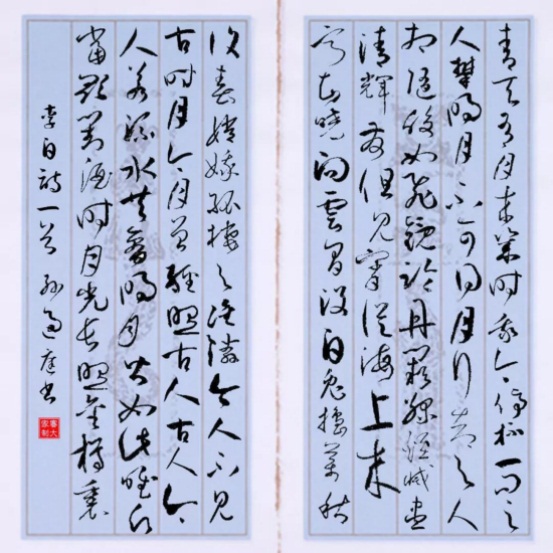 青天有月來幾時我今停杯一問之
人攀明月不可得月行却與人
相隨皎如飛鏡臨丹闕綠煙滅盡
清輝發但見宵從海上來
寧知曉向雲間没白兔搗藥秋
復春嫦娥孤棲與誰鄰今人不見
古時月今月曾經照古人古人今
人若流水共看明月皆如此唯願
當歌對酒時月光長照金樽裏
李白詩一首 孫過庭書